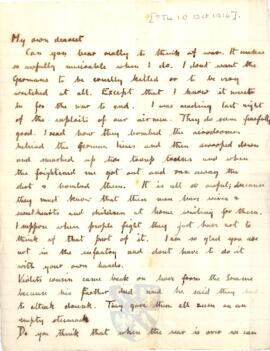 [? Tu. 10 Oct 1916].
My own dearest
Can you bear really to think of war. It makes
me so awfully miserable when I do. I dont want the
Germans to be cruelly killed or to be very
wretched at all. Except that I know it needs
be for the war to end. I was reading last night
of the exploits of our airmen. They do seem fearfully
good. I read how they bombed the aerodromes
behind the German lines and then swooped down
and smashed up two troop trains and when
the frightened men got out and ran away they
shot & bombed them. It is all so awful; because
they must know that these men have wives &
sweethearts and children at home wishing for them.
I suppose when people fight they just have not to
think of that part of it. I am so glad you are
not in the infantry and dont have to do it
with your own hands.
Violets cousin came back on leave from the Somme
because his Father died and he said they had
to attack drunk. They gave them all rum on an
empty stomach
Do you think that when the war is over we can